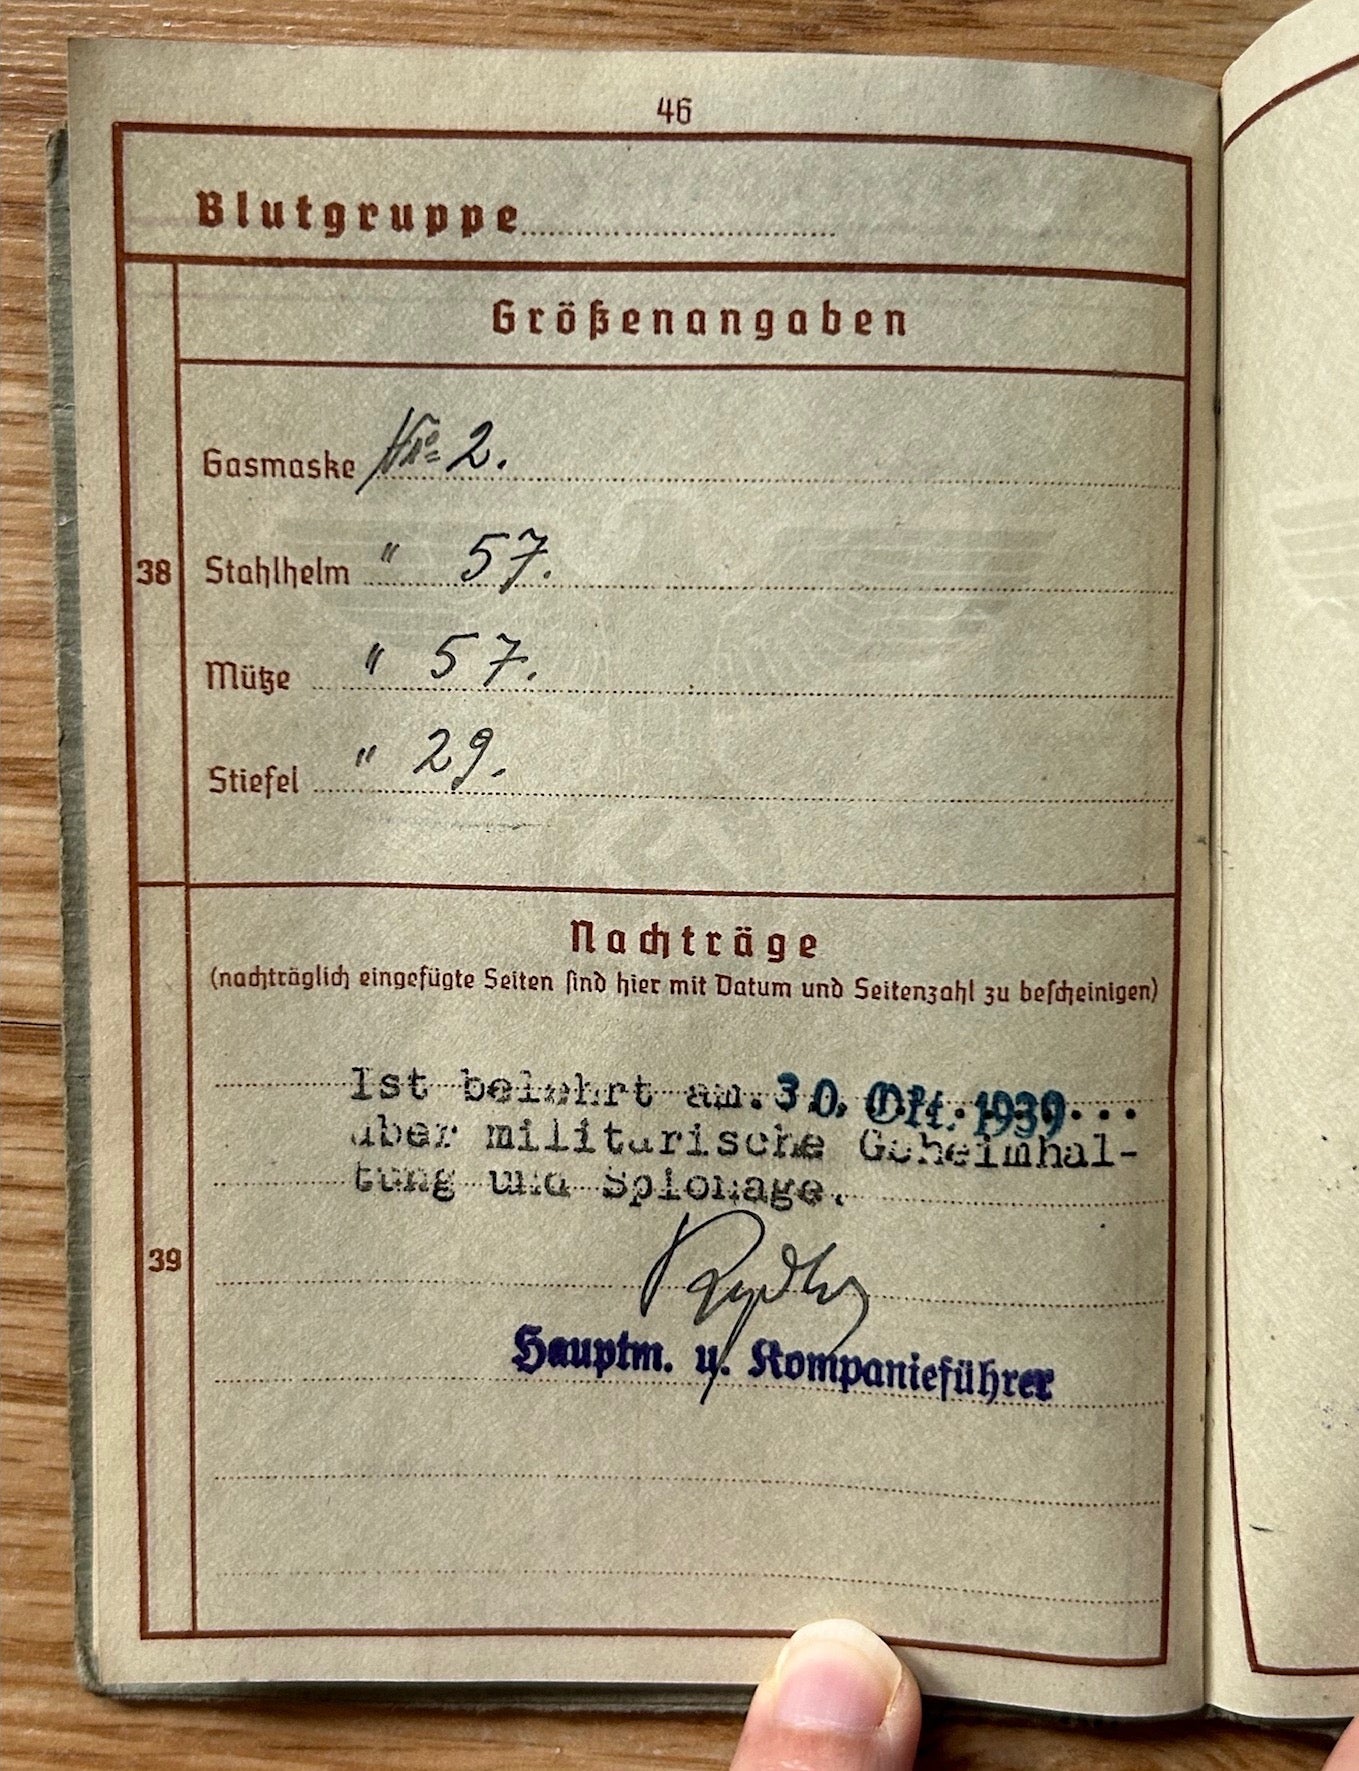 46
Blutgruppe
Größenangaben
Gasmaske No 2.
38
Stahlhelm " 57.
Mütze " 57.
Stiefel " 29.
Nachträge
(nachträglich eingefügte Seiten sind hier mit Datum und Seitenzahl zu bescheinigen)
Ist belehrt am. 30. Okt. 1939...
über militärische Geheimhal-
tung und Spionage.
39
Hauptm. u. Kompanieführer